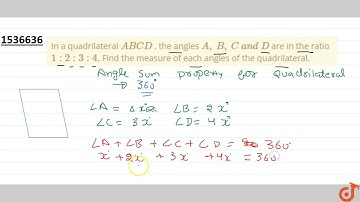 1536636
In a quadrilateral ABCD , the angles A, B, C and D are in the ratio
1 : 2 : 3 : 4. Find the measure of each angles of the quadrilateral.
Angle Sum property for Quadrilateral
→ 360°
∠A = x° ∠B = 2x°
∠C = 3x° ∠D = 4x°
∠A + ∠B + ∠C + ∠D = 360°
x° + 2x° + 3x° + 4x° = 360°